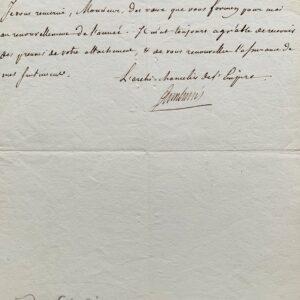 Je vous remercie, Monsieur, des vœux que vous formez pour moi
au renouvellement de l'année. Il m'est toujours agréable de recevoir
des preuves de votre attachement, & de vous renouveller l'assurance de
mes sentimens.
L'archi-Chancelier de l'Empire